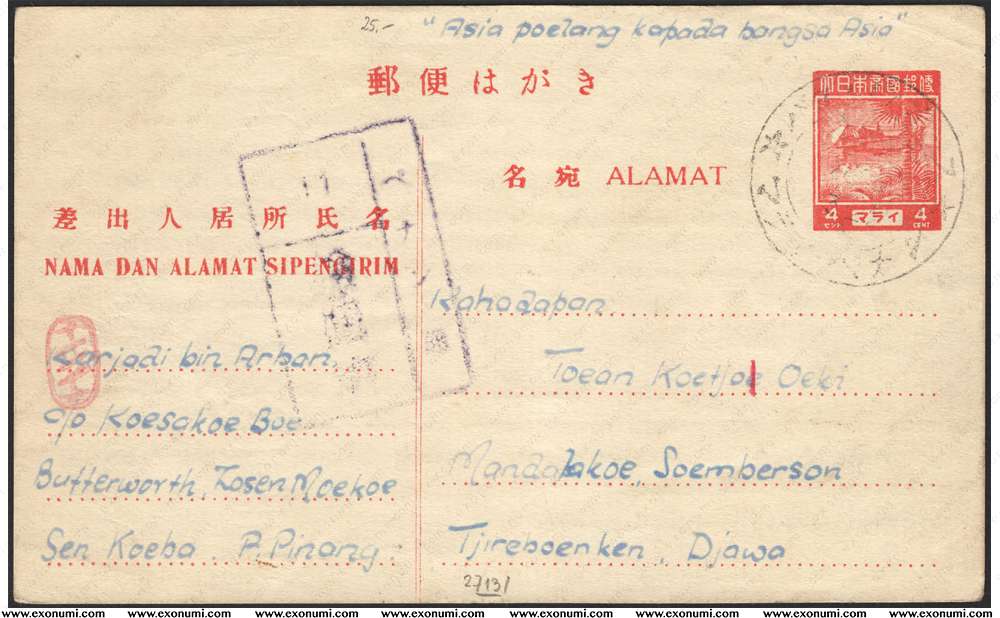 25,-
"Asia poelang kapada bangsa Asia"
郵便はがき
大日本帝國郵便
4 マライ 4
セント CENT
名宛 ALAMAT
差出人居所氏名
NAMA DAN ALAMAT SIPENGIRIM
ペナン
17
Kahadapan
Karjadi bin Arban,
Toean Koetjoe Oeki
c/o Koesakoe Boe
Mandalakoe, Soemberson
Butterworth, Zosen Moekoe
Sen Koeba, P. Pinang
Tjireboenken, Djawa
2713/
www.exonumi.com www.exonumi.com www.exonumi.com www.exonumi.com www.exonumi.com www.exonumi.com www.exonumi.com www.exonumi.com